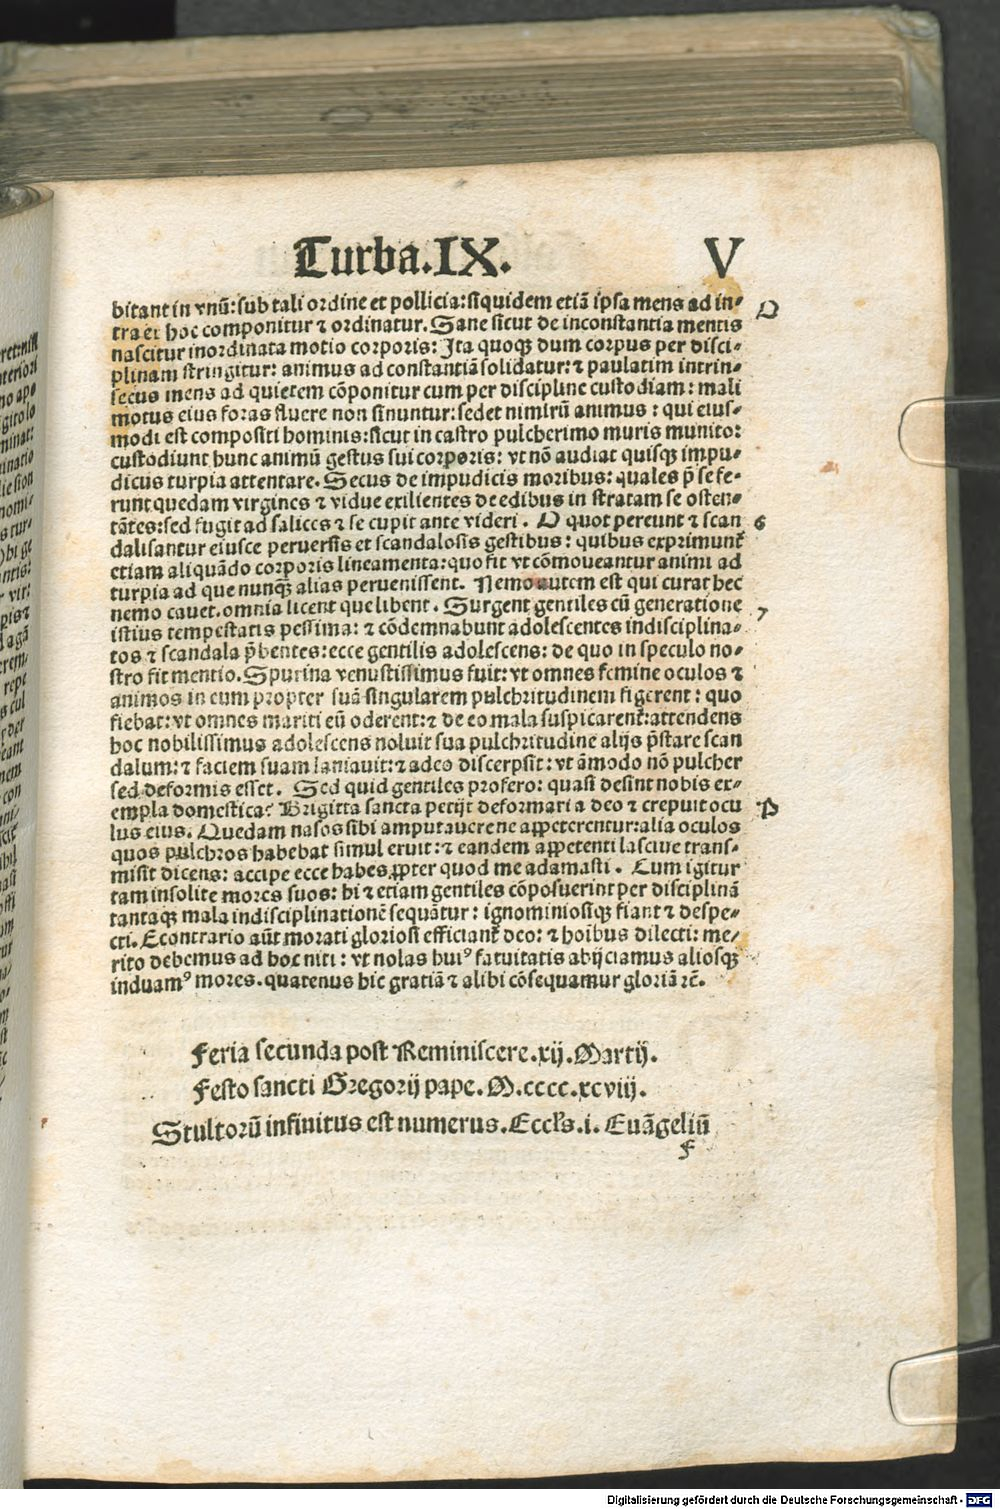 Turba.IX. V
bitant in vnũ: sub tali ordine et pollicia: siquidem etiã ipsa mens ad in-
tra et hoc componitur ⁊ ordinatur. Sane sicut de inconstantia mentis O
nascitur inordinata motio corporis: Ita quoqꝫ dum corpus per disci-
plinam stringitur: animus ad constantiã solidatur: ⁊ paulatim intrin-
secus mens ad quietem cõponitur cum per discipline custodiam: mali
motus eius foras fluere non sinuntur: sedet nimirũ animus: qui eius-
modi est compositi hominis: sicut in castro pulcherimo muris munito:
custodiunt hunc animũ gestus sui corporis: vt nõ audiat quisqꝫ impu-
dicus turpia attentare. Secus de impudicis moribus: quales p̃ se fe-
runt quedam virgines ⁊ vidue exilientes de edibus in stratam se osten-
tãtes: sed fugit ad salices ⁊ se cupit ante videri. O quot pereunt ⁊ scan 6
dalisantur eiusce peruersis et scandalosis gestibus: quibus exprimunt̃
etiam aliquãdo corporis lineamenta: quo fit vt cõmoueantur animi ad
turpia ad que nunqꝫ alias peruenissent. Nemo autem est qui curat hec
nemo cauet. omnia licent que libent. Surgent gentiles cũ generatione 7
istius tempestatis pessima: ⁊ cõdemnabunt adolescentes indisciplina-
tos ⁊ scandala p̃bentes: ecce gentilis adolescens: de quo in speculo no-
stro fit mentio. Spurina venustissimus fuit: vt omnes femine oculos ⁊
animos in eum propter suã singularem pulchritudinem figerent: quo
fiebat: vt omnes mariti eũ oderent: ⁊ de eo mala suspicarent̃: attendens
hoc nobilissimus adolescens noluit sua pulchritudine alijs p̃stare scan
dalum: ⁊ faciem suam laniauit: ⁊ adeo discerpsit: vt ãmodo nõ pulcher
sed deformis esset. Sed quid gentiles profero: quasi desint nobis ex-
empla domestica? Brigitta sancta petijt deformari a deo ⁊ crepuit ocu P
lus eius. Quedam nasos sibi amputauere ne appeterentur: alia oculos
quos pulchros habebat simul eruit: ⁊ eandem appetenti lasciue trans-
misit dicens: accipe ecce habes ꝓpter quod me adamasti. Cum igitur
tam insolite mores suos: hi ⁊ etiam gentiles cõposuerint per disciplinã
tantaqꝫ mala indisciplinationẽ sequãtur: ignominiosiqꝫ fiant ⁊ despe-
cti. Econtrario aũt morati gloriosi efficiant̃ deo: ⁊ hoĩbus dilecti: me-
rito debemus ad hoc niti: vt nolas huiꝰ fatuitatis abijciamus aliosqꝫ
induamꝰ mores. quatenus hic gratiã ⁊ alibi cõsequamur gloriã rc̃.
Feria secunda post Reminiscere. xij. Martij.
Festo sancti Gregorij pape. M. cccc. xcviij.
Stultorũ infinitus est numerus. Eccl's. i. Euãgeliũ
F
Digitalisierung gefördert durch die Deutsche Forschungsgemeinschaft - DFG